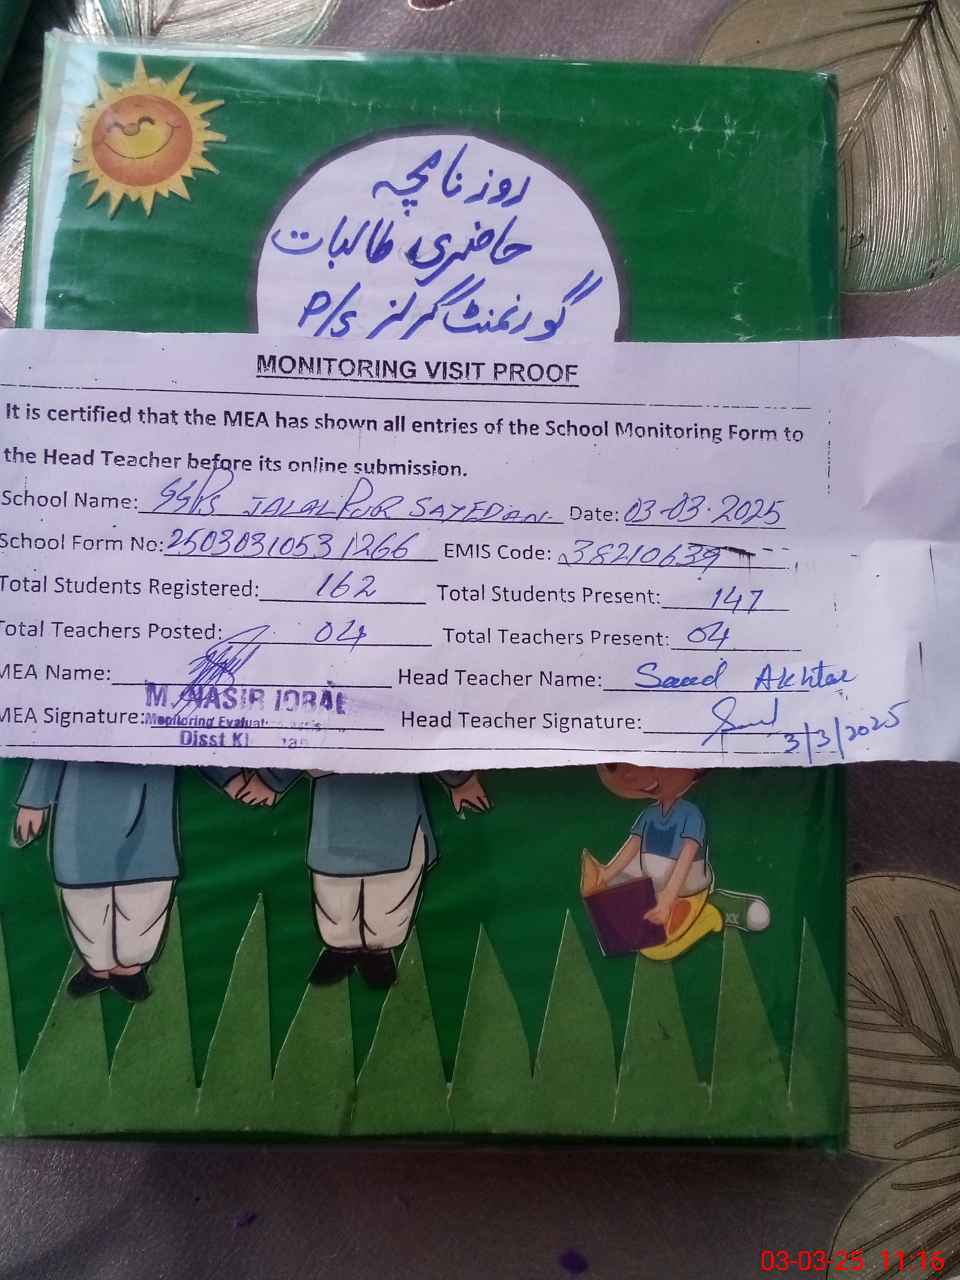 روزنامچہ
حاضری طالبات
گورنمنٹ گرلز P/S
MONITORING VISIT PROOF
It is certified that the MEA has shown all entries of the School Monitoring Form to
the Head Teacher before its online submission.
School Name: GGPS JALALPUR SAYEDAN Date: 03-03-2025
School Form No: 25030310531266 EMIS Code: 38210639
Total Students Registered: 162 Total Students Present: 147
Total Teachers Posted: 04 Total Teachers Present: 04
MEA Name: Head Teacher Name: Saud Akhtar
M. NASIR IQBAL
MEA Signature: Monitoring Head Teacher Signature:
Disst
3/3/2025
03-03-25 11:16